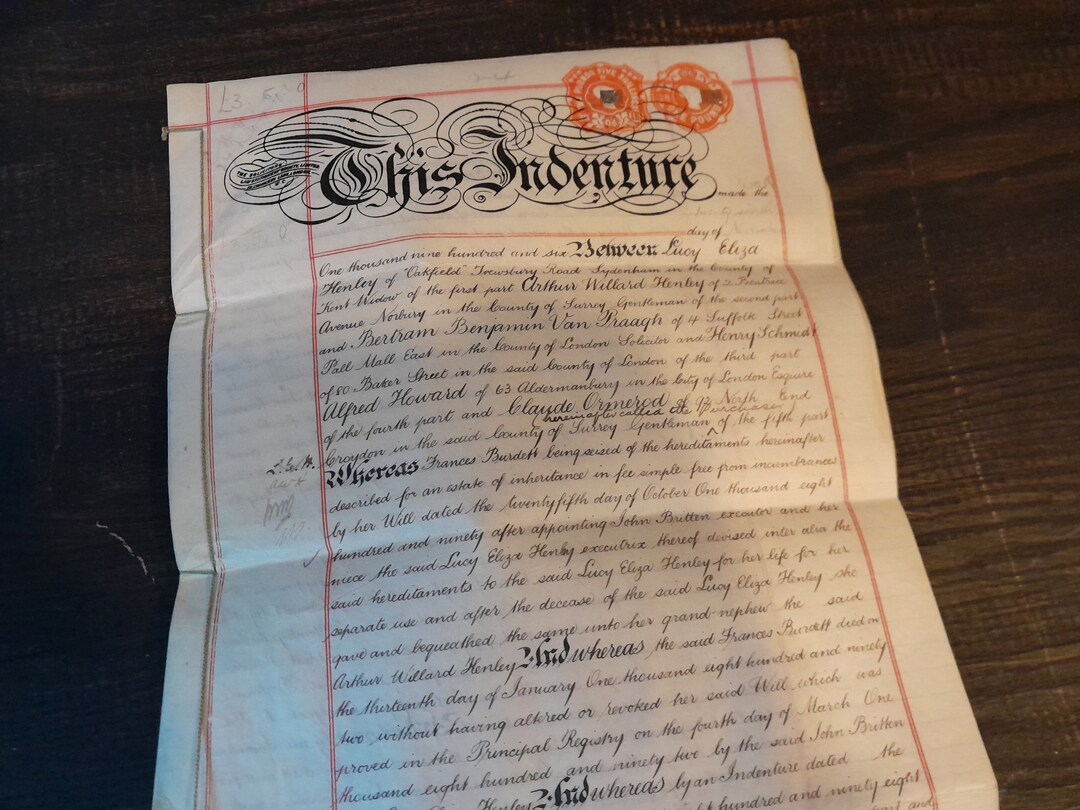 L3
This Indenture made the
day of
One thousand nine hundred and six Between Lucy Eliza
Henley of "Oakfield" Road Sydenham in the County of
Kent Widow of the first part Arthur Willard Henley of 2 Beatrice
Avenue Norbury in the County of Surrey Gentleman of the second part
and Bertram Benjamin Van Praagh of 4 Suffolk Street
Pall Mall East in the County of London Solicitor and Henry Schmidt
of 80 Baker Street in the said County of London of the third part
Alfred Howard of 63 Aldermanbury in the City of London Esquire
of the fourth part and Claude Ormerod of North End
(hereinafter called the Purchaser)
Croydon in the said County of Surrey Gentleman of the fifth part
Whereas Frances Burdett being seised of the hereditaments hereinafter
described for an estate of inheritance in fee simple free from incumbrances
by her Will dated the twentyfifth day of October One thousand eight
hundred and ninety after appointing John Britten executor and her
niece the said Lucy Eliza Henley executrix thereof devised inter alia the
said hereditaments to the said Lucy Eliza Henley for her life for her
separate use and after the decease of the said Lucy Eliza Henley she
gave and bequeathed the same unto her grand-nephew the said
Arthur Willard Henley And whereas the said Frances Burdett died on
the thirteenth day of January One thousand eight hundred and ninety
two without having altered or revoked her said Will which was
proved in the Principal Registry on the fourth day of March One
thousand eight hundred and ninety two by the said John Britten
Henley And whereas by an Indenture dated the
hundred and ninety eight